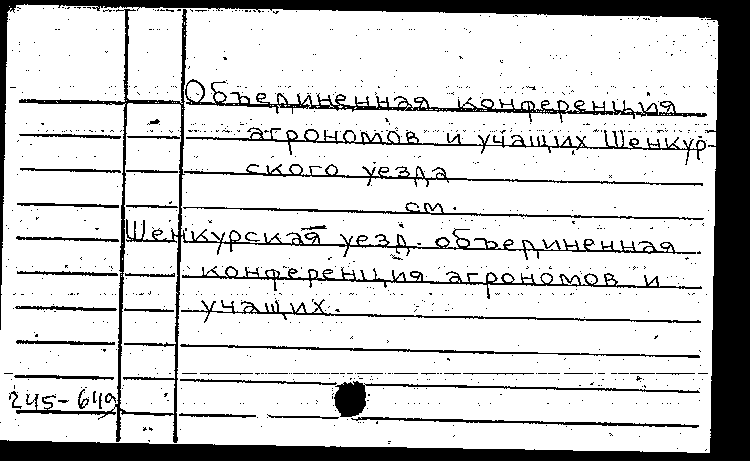 Объединенная конференция
агрономов и учащих Шенкур-
ского уезда
см.
Шенкурская уезд. объединенная
конференция агрономов и
учащих.
245-649